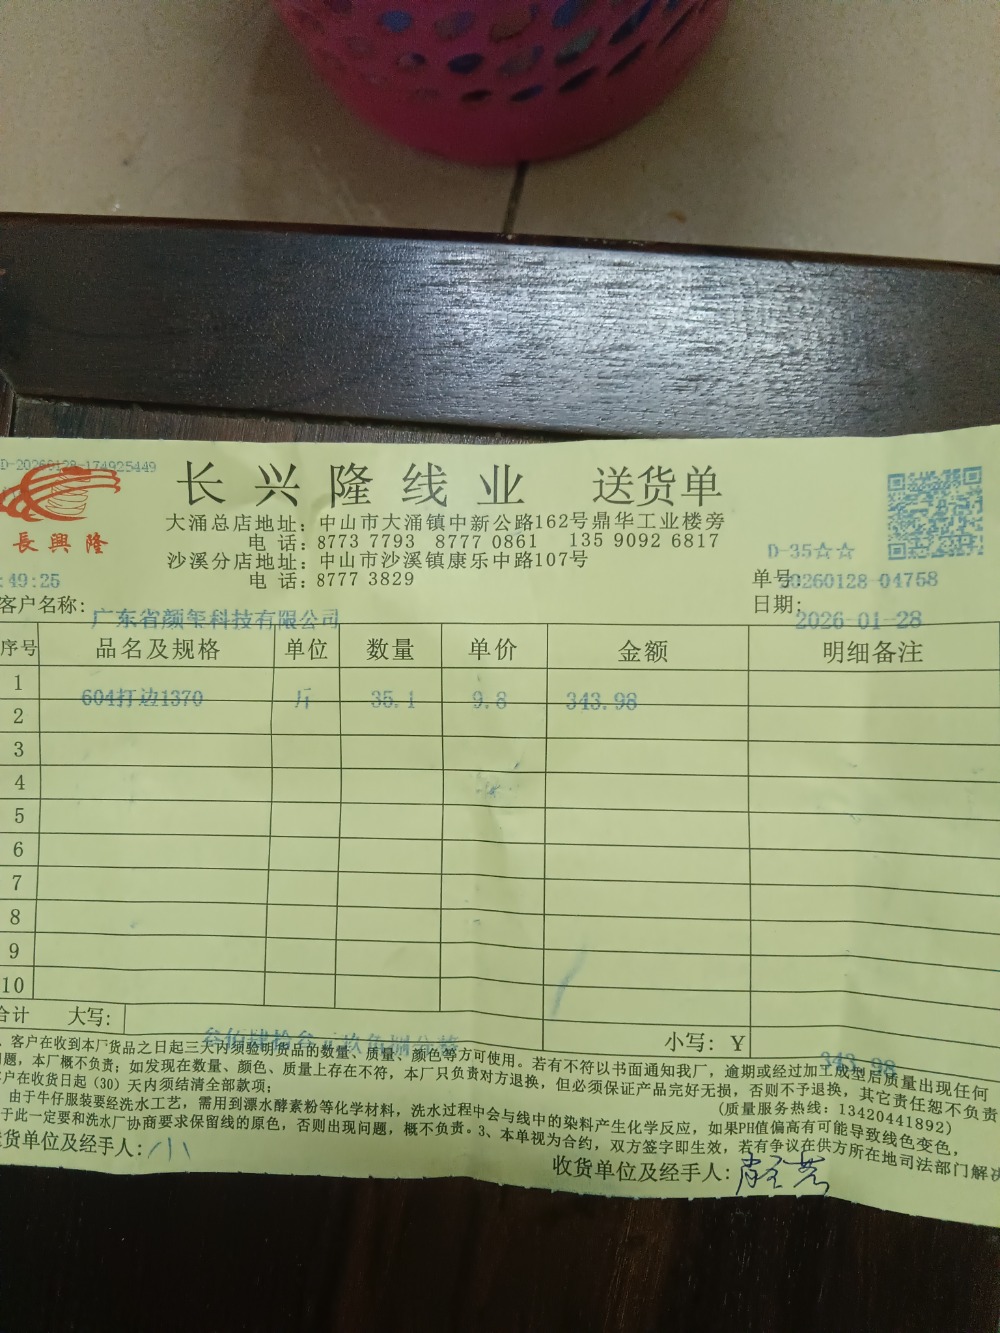 D-20260128-174925449
长兴隆线业 送货单
長興隆
大涌总店地址：中山市大涌镇中新公路162号鼎华工业楼旁
电 话：8773 7793 8777 0861 135 9092 6817
沙溪分店地址：中山市沙溪镇康乐中路107号
电 话：8777 3829
D-35☆☆
:49:25
单号:20260128-04758
客户名称: 广东省颜玺科技有限公司
日期: 2026-01-28
序号 品名及规格 单位 数量 单价 金额 明细备注
1 604打边1370 斤 35.1 9.8 343.98
2
3
4
5
6
7
8
9
10
合计 大写: 叁佰肆拾叁元玖角捌分整 小写: Y 343.98
、客户在收到本厂货品之日起三天内须验明货品的数量、质量、颜色等方可使用。若有不符以书面通知我厂，逾期或经过加工成型后质量出现任何
问题，本厂概不负责；如发现在数量、颜色、质量上存在不符，本厂只负责对方退换，但必须保证产品完好无损，否则不予退换，其它责任恕不负责
客户在收货日起（30）天内须结清全部款项；
(质量服务热线：13420441892)
由于牛仔服装要经洗水工艺，需用到漂水酵素粉等化学材料，洗水过程中会与线中的染料产生化学反应，如果PH值偏高有可能导致线色变色，
于此一定要和洗水厂协商要求保留线的原色，否则出现问题，概不负责。3、本单视为合约，双方签字即生效，若有争议在供方所在地司法部门解决
送货单位及经手人:
收货单位及经手人: